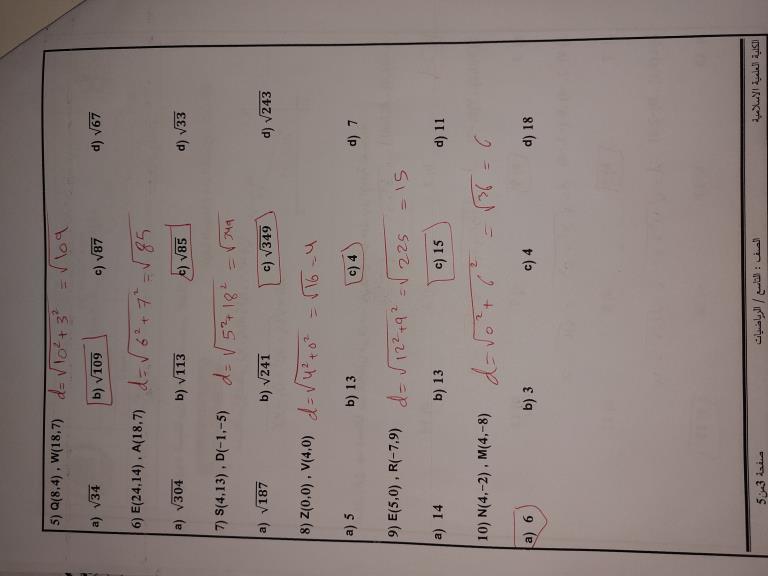 5) Q(8,4) , W(18,7) d=√10²+3² = √109
a) √34 b) √109 c) √87 d) √67
6) E(24,14) , A(18,7) d=√6²+7² = √85
a) √304 b) √113 c) √85 d) √33
7) S(4,13) , D(−1,−5) d=√5²+18² = √349
a) √187 b) √241 c) √349 d) √243
8) Z(0,0) , V(4,0) d=√4²+0² = √16 = 4
a) 5 b) 13 c) 4 d) 7
9) E(5,0) , R(−7,9) d=√12²+9² = √225 = 15
a) 14 b) 13 c) 15 d) 11
10) N(4,−2) , M(4,−8) d=√0²+6² = √36 = 6
a) 6 b) 3 c) 4 d) 18
صفحة 3من5 الصف : التاسع / الرياضيات الكلية العلمية الاسلامية